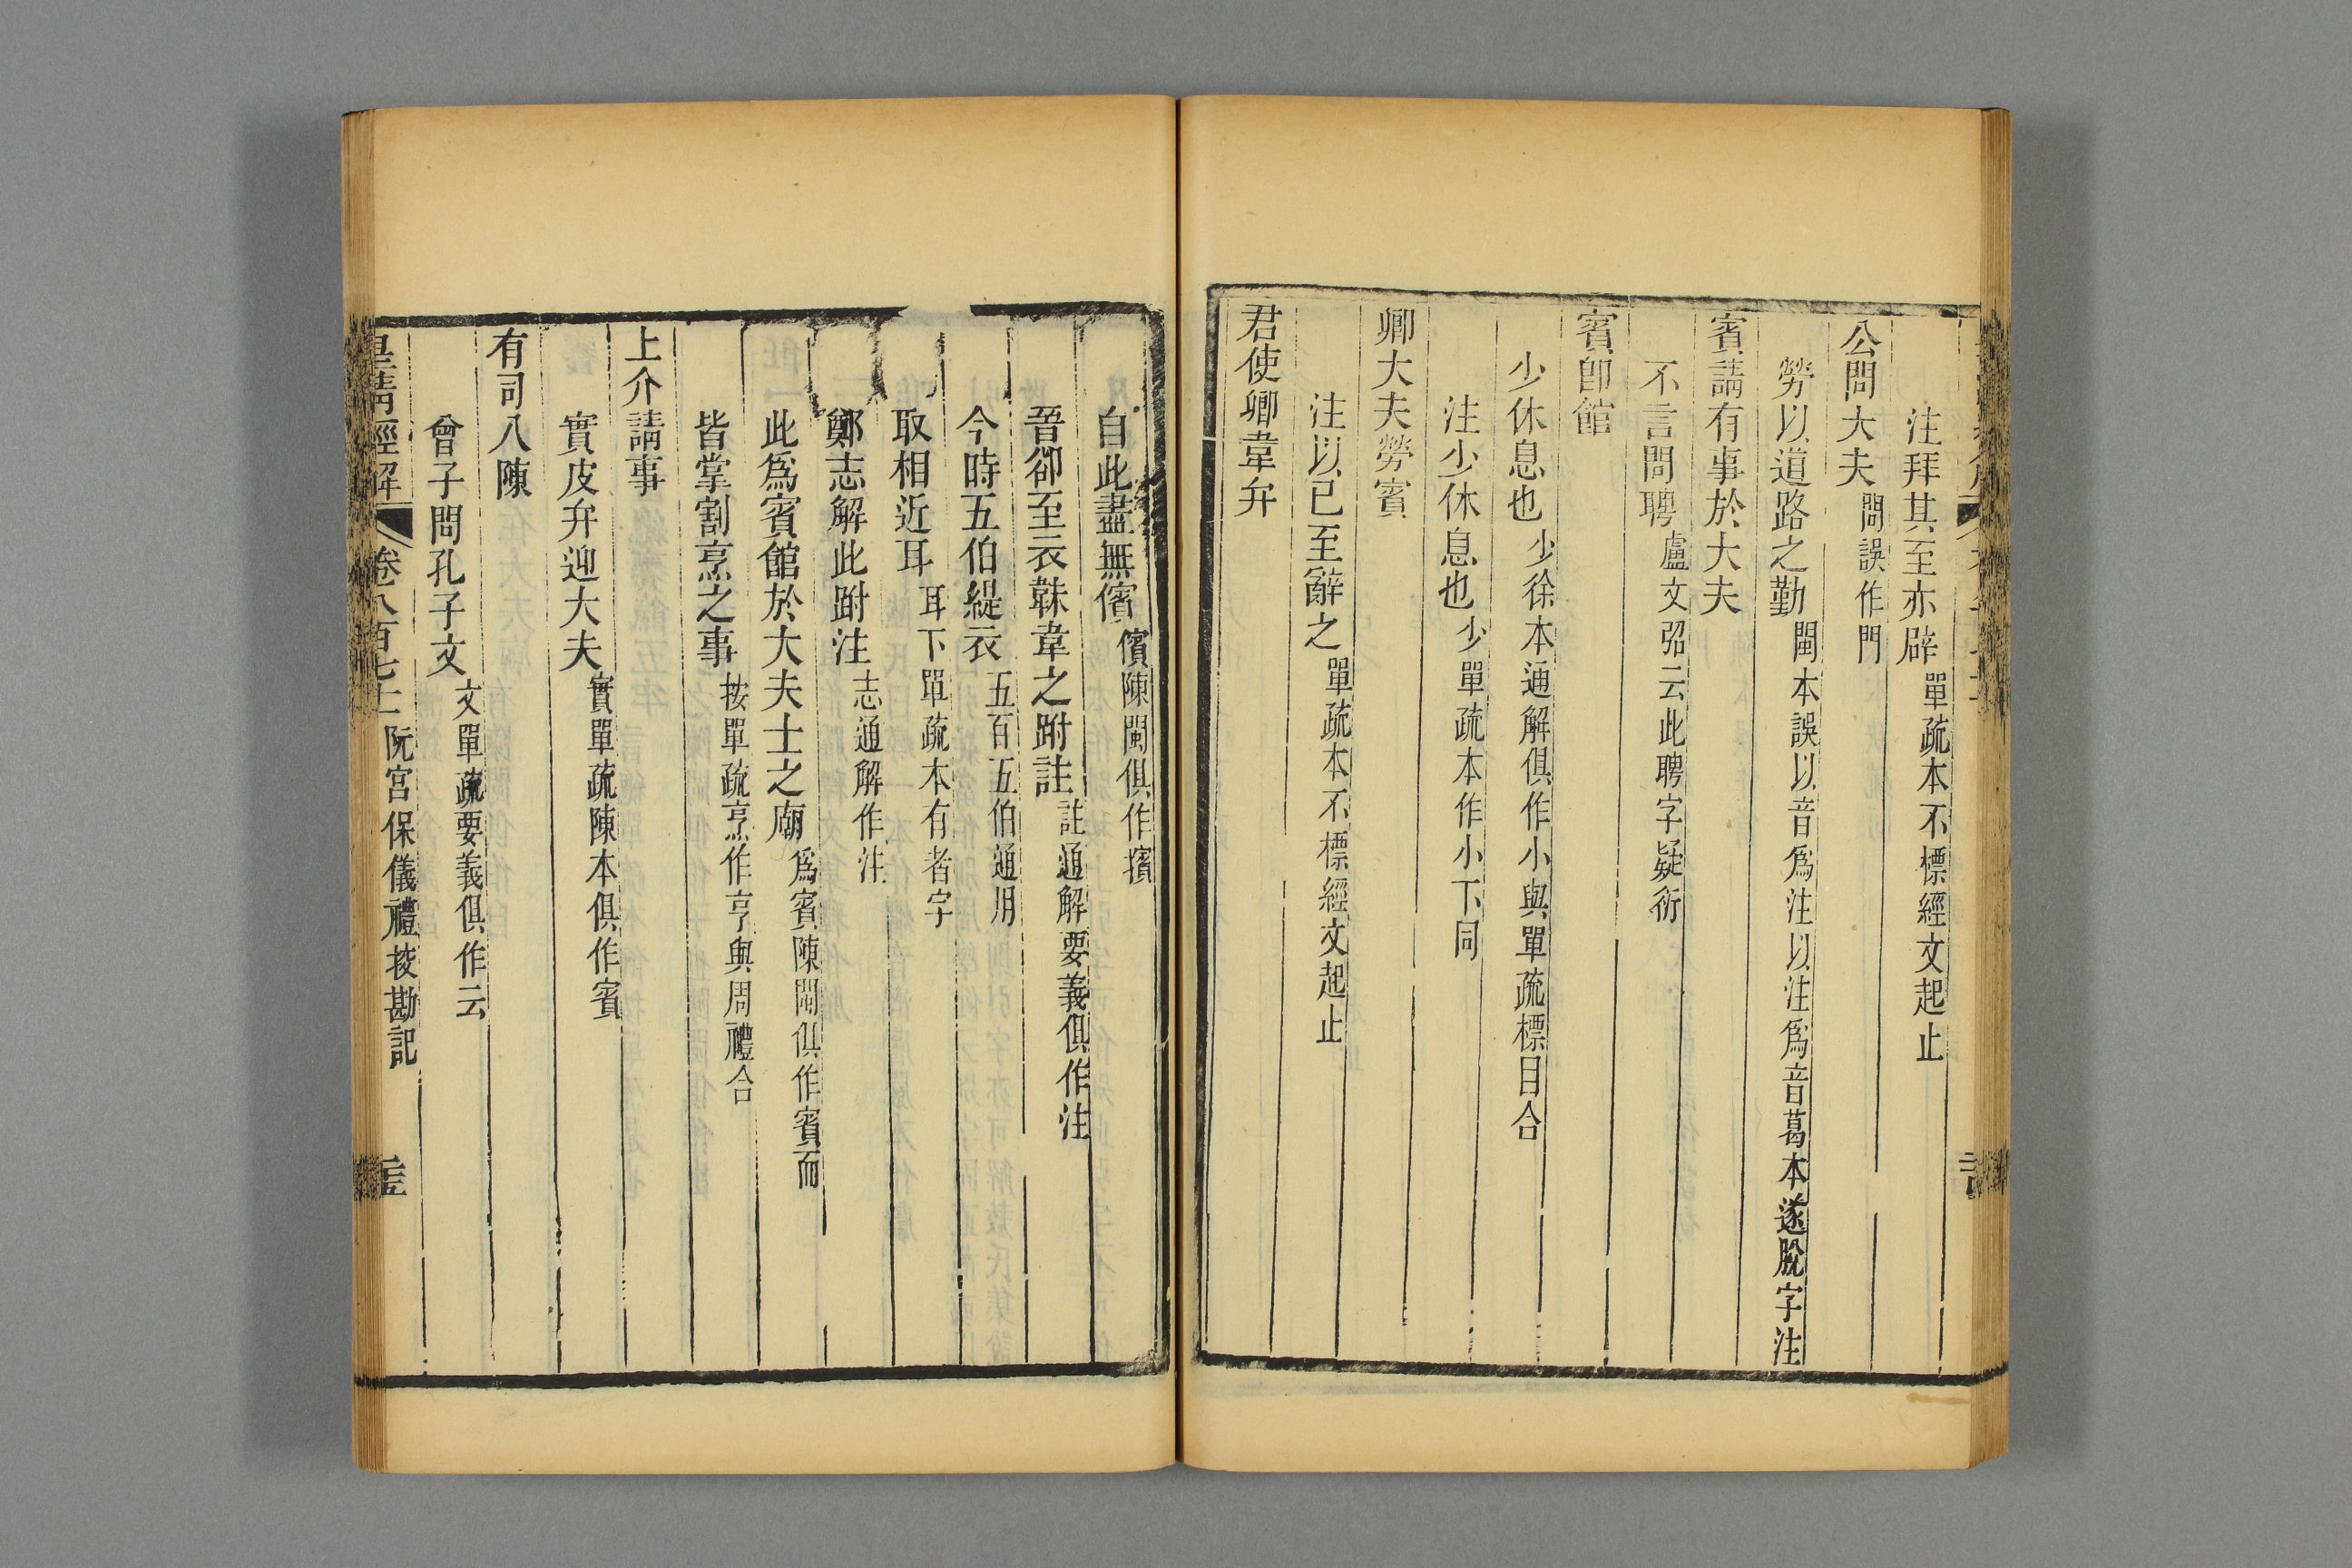 注拜其至亦辟單疏本不標經文起止
公問大夫問誤作門
勞以道路之勤閩本誤以音爲注以注爲音葛本遂脫字注
賓請有事於大夫
不言問聘盧文弨云此聘字疑衍
賓卽館
少休息也少徐本通解俱作小與單疏標目合
注少休息也少單疏本作小下同
卿大夫勞賓
注以已至辭之單疏本不標經文起止
君使卿韋弁
自此盡無儐儐陳閩俱作擯
晉郤至衣韎韋之跗註註通解要義俱作注
今時五伯緹衣五百五伯通用
取相近耳耳下單疏本有者字
鄭志解此跗注志通解作注
此爲賓館於大夫士之廟爲賓陳閩俱作賓而
皆掌割烹之事按單疏烹作亨與周禮合
上介請事
賓皮弁迎大夫賓單疏陳本俱作賓
有司入陳
曾子問孔子文文單疏要義俱作云
皇清經解 卷八百七十 阮宮保儀禮挍勘記 壹